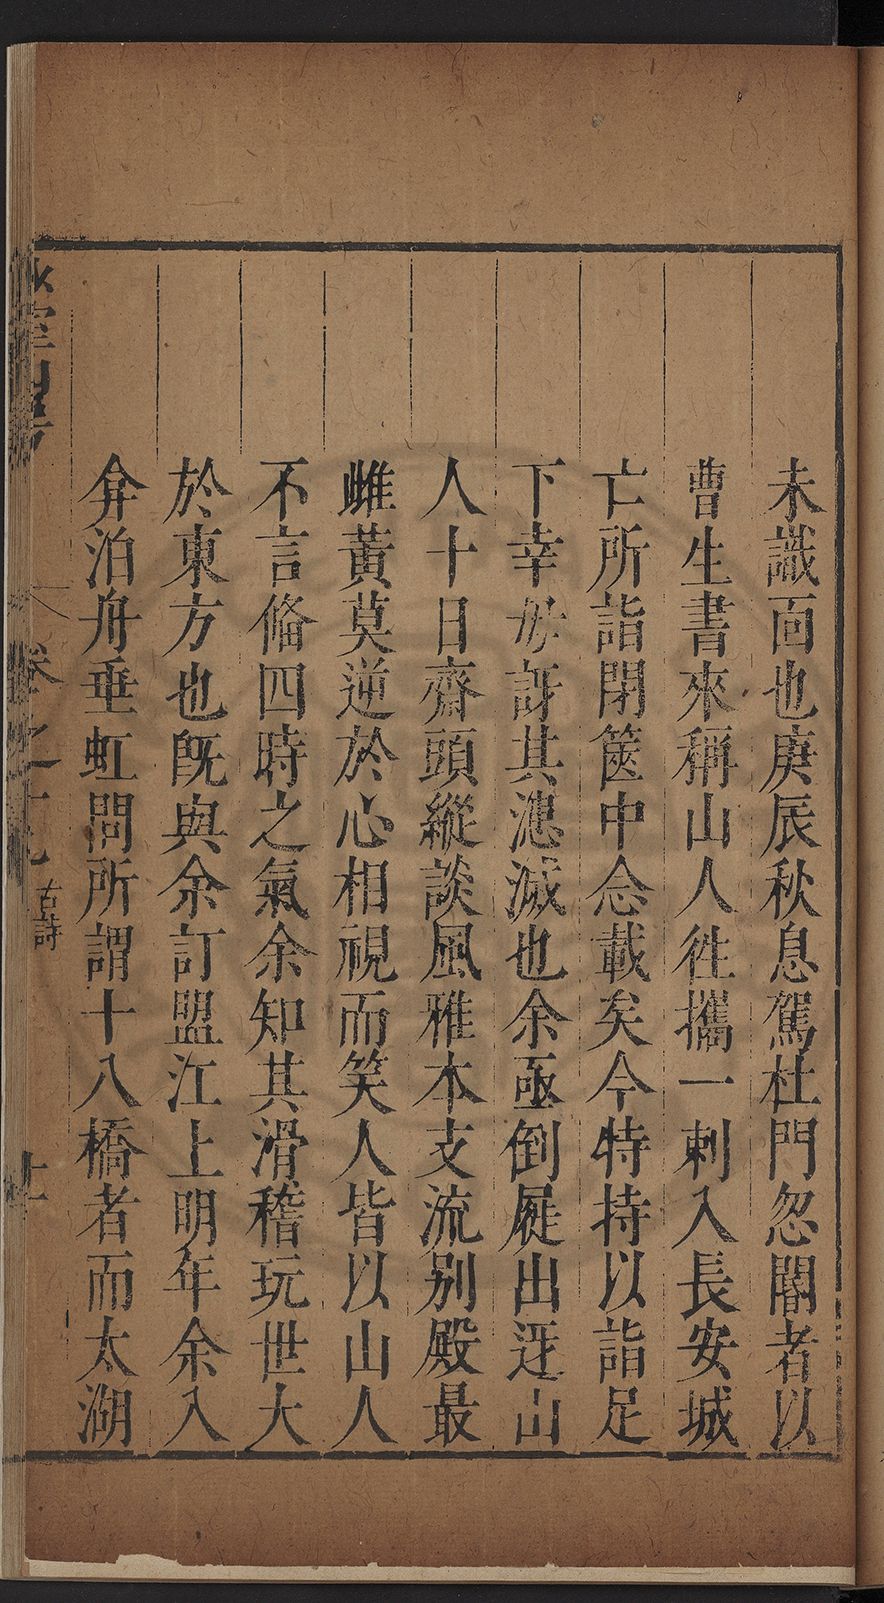 未識面也庚辰秋息駕杜門忽閽者以
曹生書來稱山人徃攜一刺入長安城
亡所詣閉篋中念載矣今特持以詣足
下幸毋訝其漶滅也余亟倒屣出迓山
人十日齋頭縱談風雅本支流别殿最
雌黃莫逆於心相視而笑人皆以山人
不言偹四時之氣余知其滑稽玩世大
於東方也旣與余訂盟江上明年余入
弇泊舟垂虹問所謂十八橋者而太湖
卷之十九 古詩